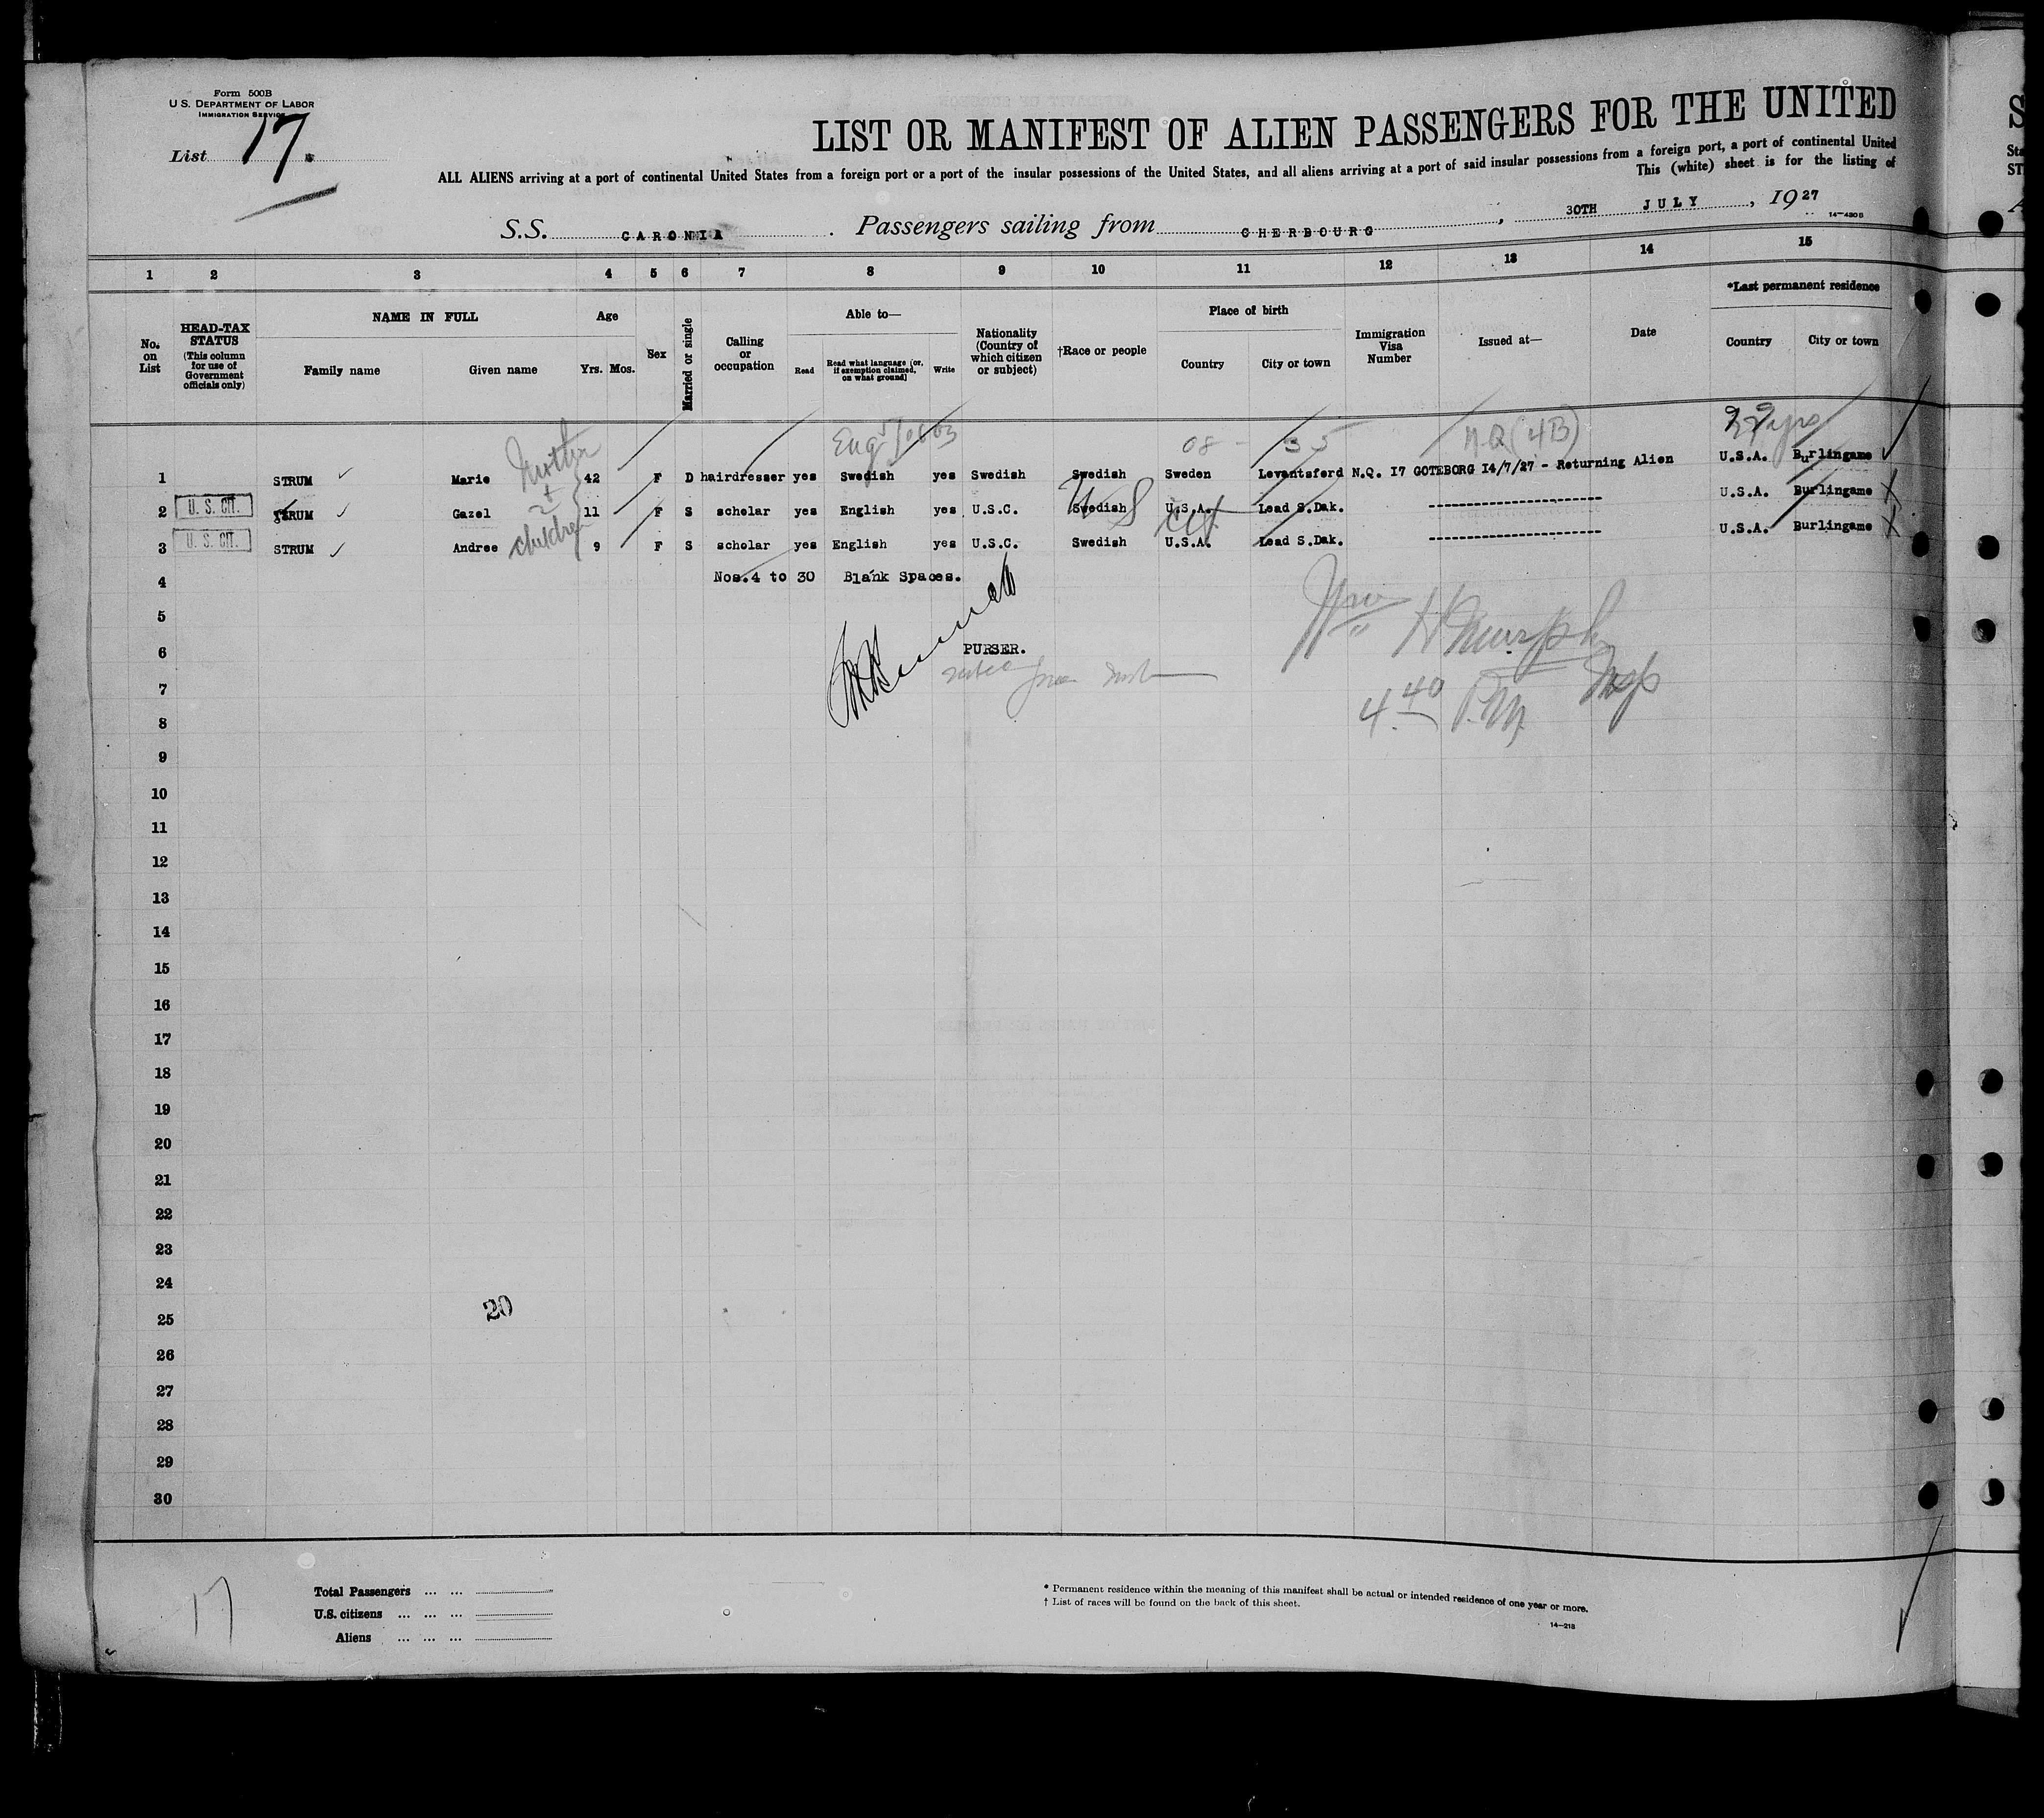 Form 500B
U.S. DEPARTMENT OF LABOR
IMMIGRATION SERVICE
List 17
LIST OR MANIFEST OF ALIEN PASSENGERS FOR THE UNITED
ALL ALIENS arriving at a port of continental United States from a foreign port or a port of the insular possessions of the United States, and all aliens arriving at a port of said insular possessions from a foreign port, a port of continental United
This (white) sheet is for the listing of
S.S. CARONIA. Passengers sailing from CHERBOURG, 30TH JULY, 1927
14-430B
1 2 3 4 5 6 7 8 9 10 11 12 13 14 15
No. on List
HEAD-TAX STATUS (This column for use of Government officials only)
NAME IN FULL
Family name Given name
Age
Yrs. Mos.
Sex
Married or single
Calling or occupation
Able to—
Read Read what language [or, if exemption claimed, on what ground] Write
Nationality (Country of which citizen or subject)
†Race or people
Place of birth
Country City or town
Immigration Visa Number
Issued at—
Date
*Last permanent residence
Country City or town
Mother + 2 children
Eng 08 - 35 N.Q (4B) yrs
1 STRUM Marie 42 F D hairdresser yes Swedish yes Swedish Swedish Sweden Leventsferd N.Q. 17 GOTEBORG 14/7/27 - Returning Alien U.S.A. Burlingame
2 U. S. CIT. STRUM Gazel 11 F S scholar yes English yes U.S.C. Swedish U.S.A. Lead S.Dak. ---------------------- U.S.A. Burlingame
US Cit
3 U. S. CIT. STRUM Andree 9 F S scholar yes English yes U.S.C. Swedish U.S.A. Lead S.Dak. ---------------------- U.S.A. Burlingame
4 Nos.4 to 30 Blank Spaces.
5
6 PURSER. H Murphy
7 Insp
8 4.40 P.M.
9
10
11
12
13
14
15
16
17
18
19
20
21
22
23
24
20
25
26
27
28
29
30
17
Total Passengers ... ...
U.S. citizens ... ... ...
Aliens ... ... ...
* Permanent residence within the meaning of this manifest shall be actual or intended residence of one year or more.
† List of races will be found on the back of this sheet.
14-213